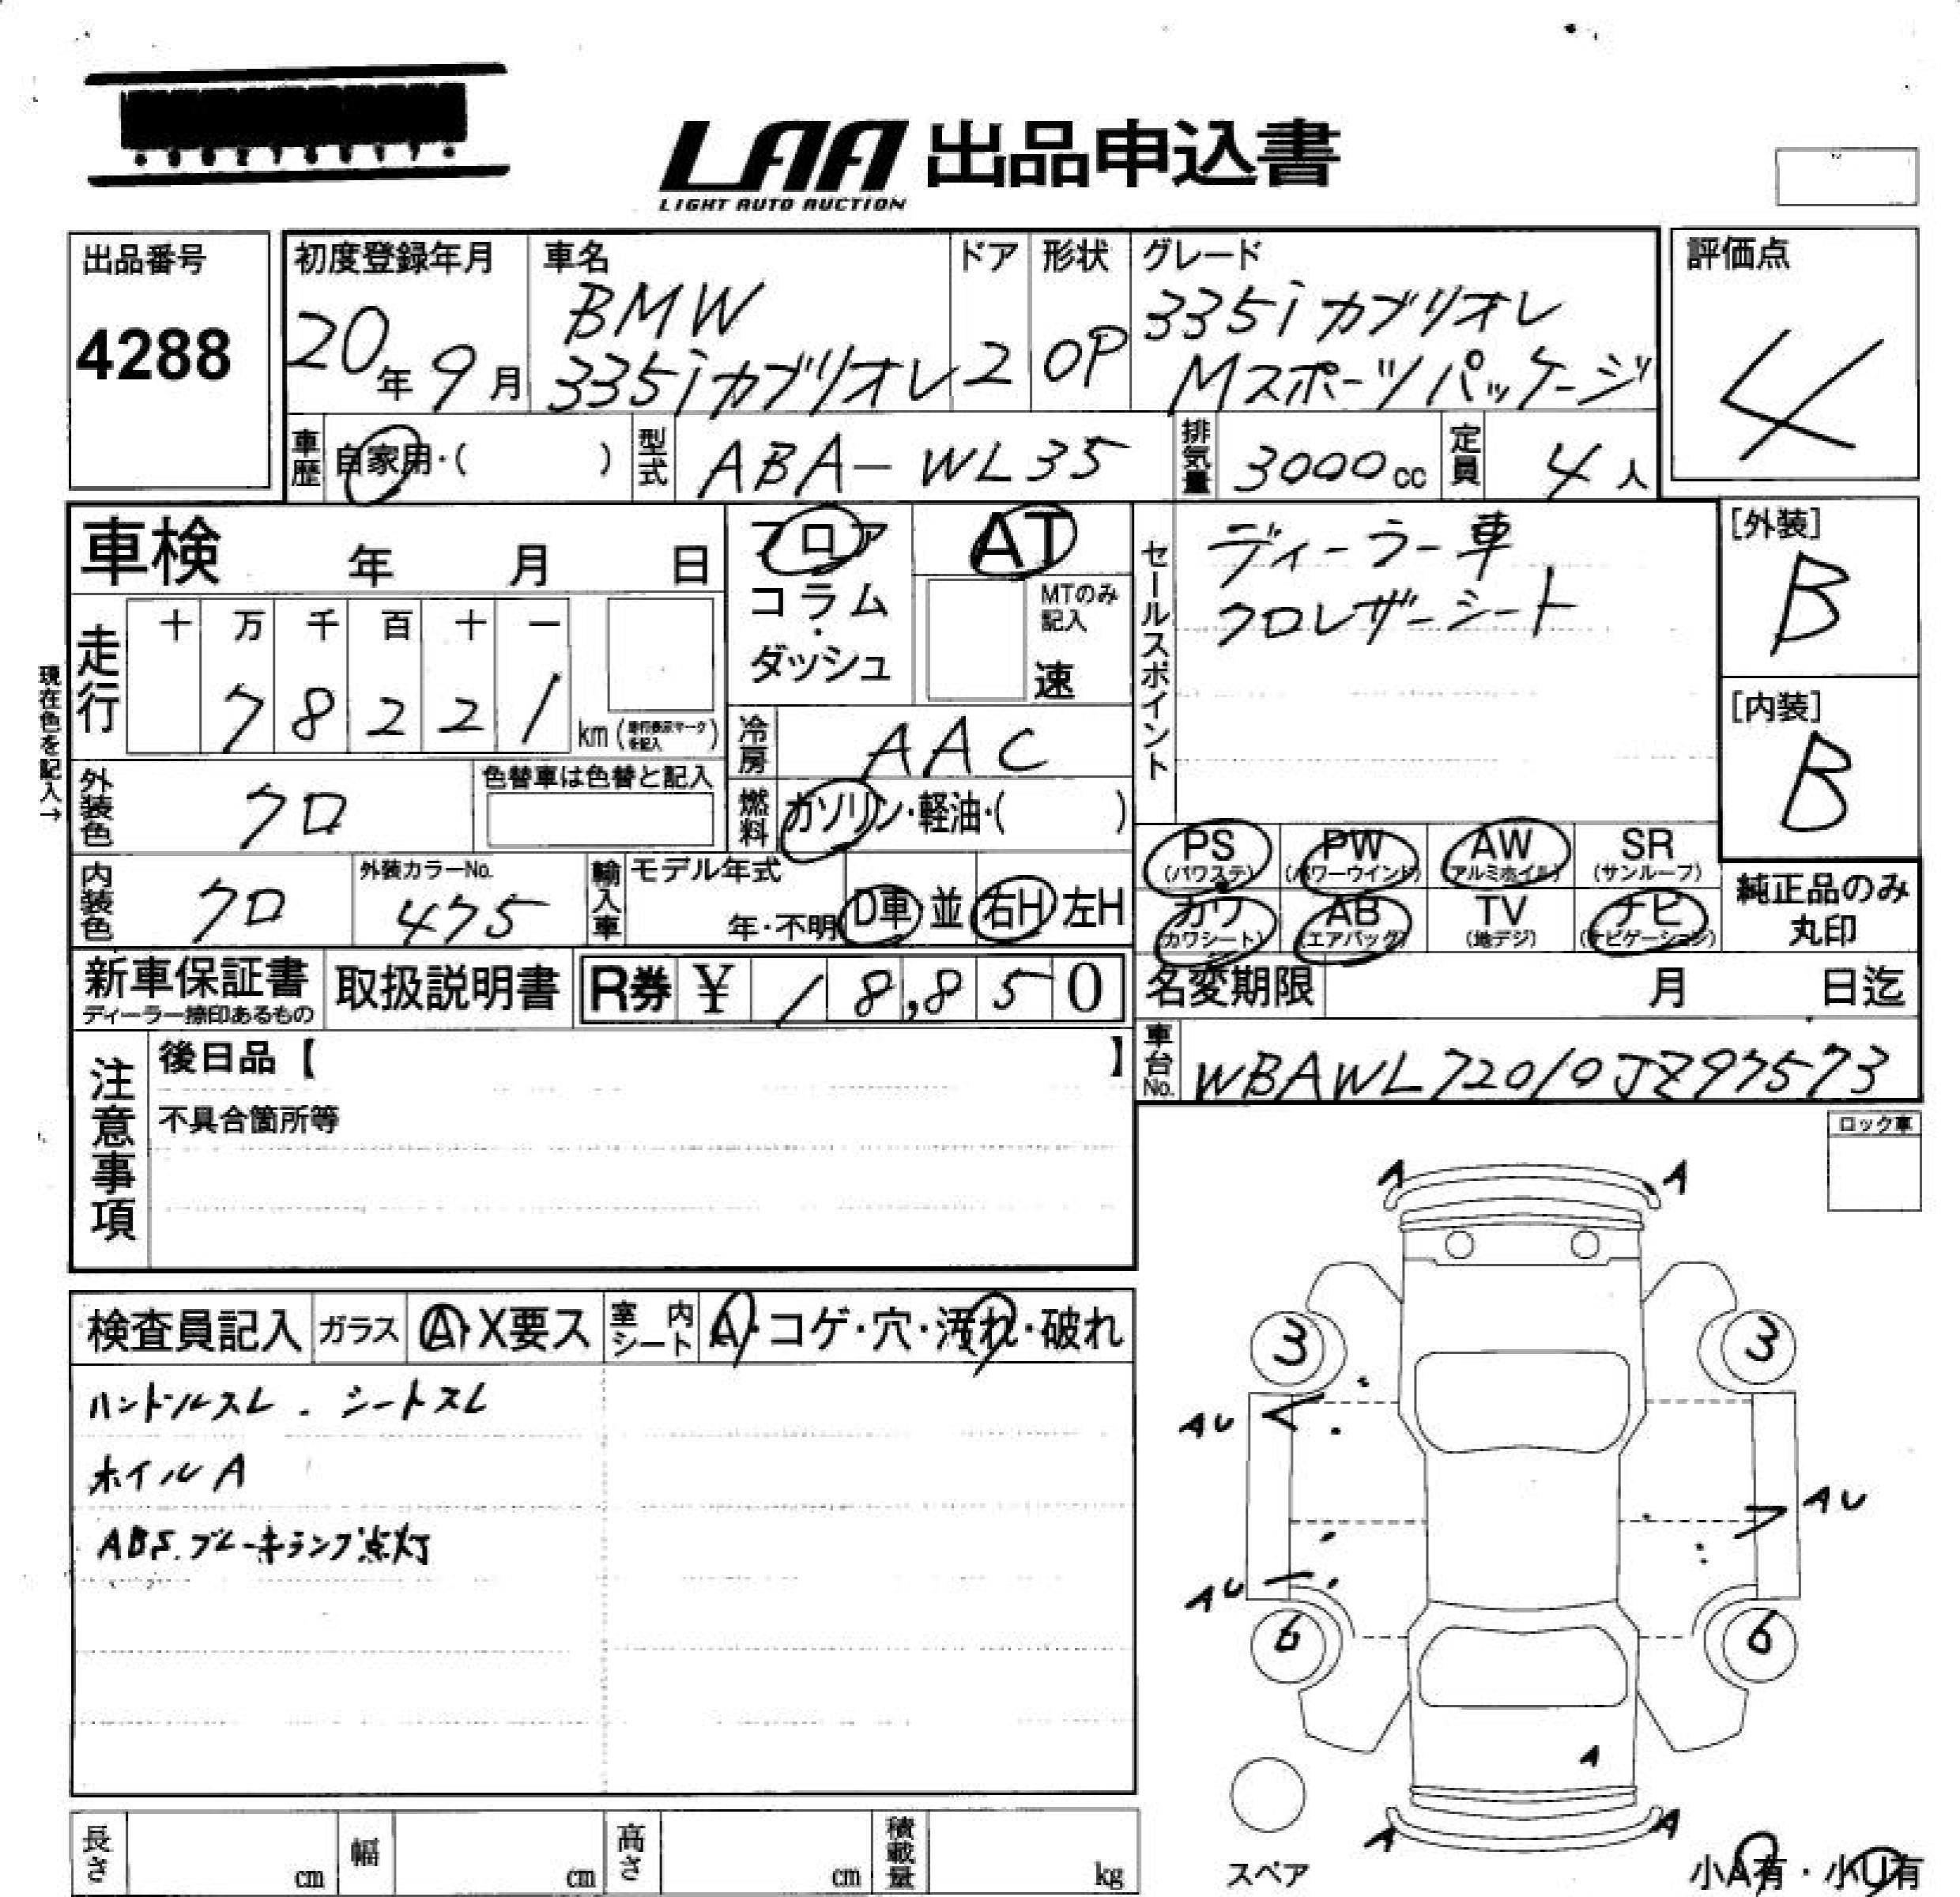 LAA 出品申込書
LIGHT AUTO AUCTION
出品番号
4288
初度登録年月
20年9月
車名
BMW
335iカブリオレ
ドア
2
形状
OP
グレード
335iカブリオレ
Mスポーツパッケージ
評価点
4
車歴
自家用・( )
型式
ABA-WL35
排気量
3000cc
定員
4人
車検 年 月 日
フロア
コラム
・
ダッシュ
AT
MTのみ
記入
速
セールスポイント
ディーラー車
クロレザーシート
[外装]
B
[内装]
B
現在色を記入→
走行
十 万 千 百 十 一
7 8 2 2 1
km
冷房
AAC
外装色
クロ
色替車は色替と記入
燃料
ガソリン・軽油・( )
内装色
クロ
外装カラーNo.
475
輸入車
モデル年式
年・不明
D車 並 右H 左H
PS
(パワステ)
PW
(パワーウインド)
AW
(アルミホイル)
SR
(サンルーフ)
カワ
(カワシート)
AB
(エアバッグ)
TV
(地デジ)
ナビ
(ナビゲーション)
純正品のみ
丸印
新車保証書
ディーラー捺印あるもの
取扱説明書
R券 ¥ 18,850
名変期限 月 日迄
車台No.
WBAWL72010JZ97573
注意事項
後日品【 】
不具合箇所等
ロック車
検査員記入
ガラス
A・X要ス
室内シート
A・コゲ・穴・汚れ・破れ
ハンドルスレ . シートスレ
ホイルA
ABS.ブレーキランプ点灯
A A
3 3
AU
AU
AU
6 6
A
A A
スペア
小A有・小U有
長さ cm
幅 cm
高さ cm
積載量 kg